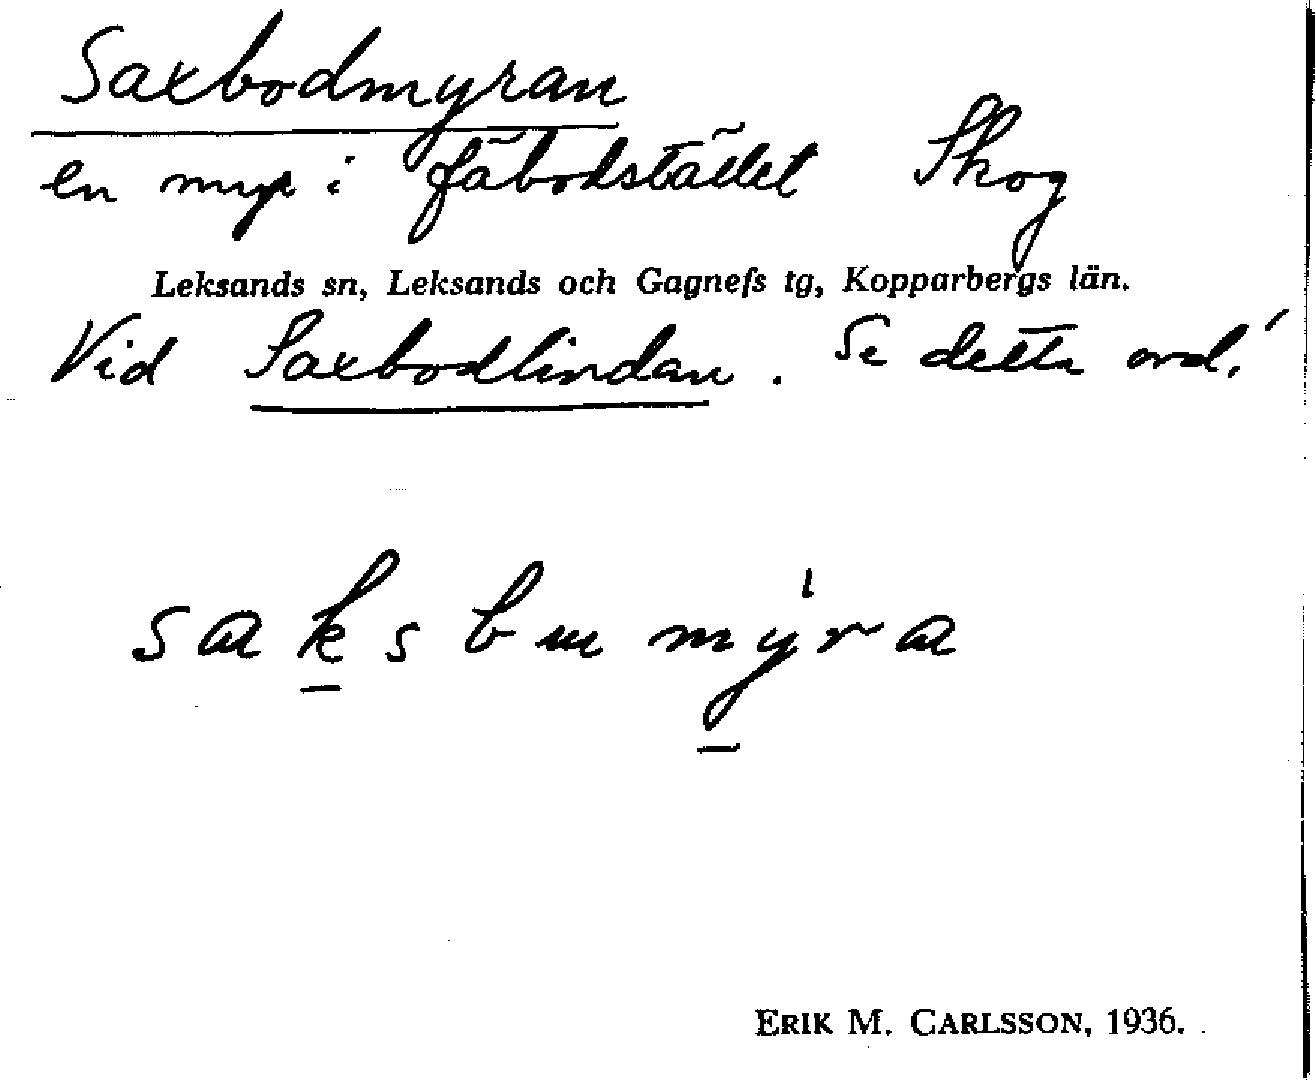 Saxbodmyran
en myr i fäbodstället Skog
Leksands sn, Leksands och Gagnefs tg, Kopparbergs län.
Vid Saxbodlindan. Se detta ord!
saksbumyra
ERIK M. CARLSSON, 1936.